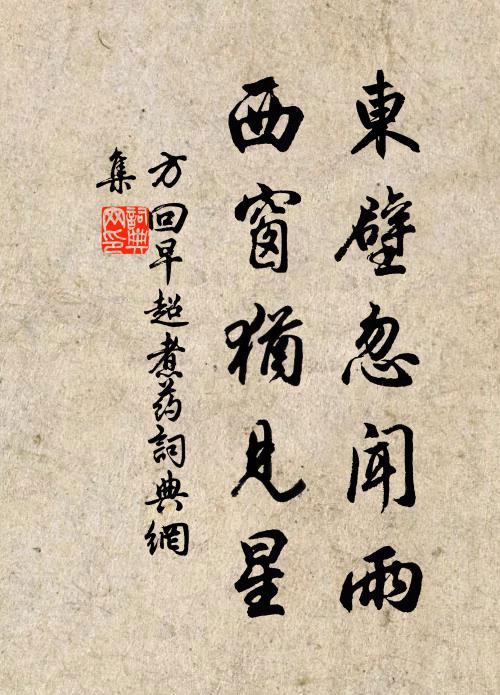 東壁忽聞雨
西窗猶見星
方回早超煮药詞典網
集
詞典網印